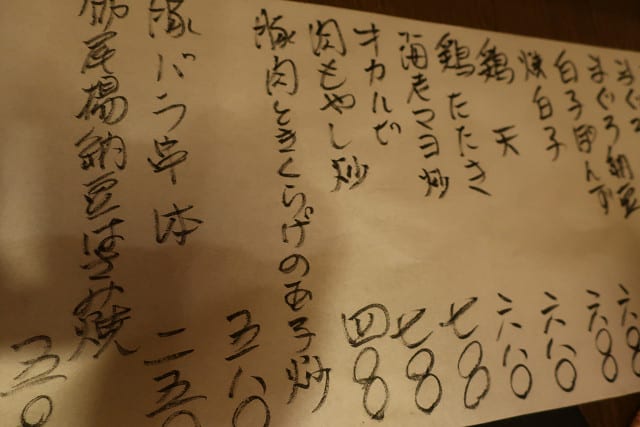 まぐろ納豆 六八
白子ぽんず 六八〇
焼白子 六八〇
鶏天 六八〇
鶏たたき 七八〇
海老マヨ炒 七八〇
カルビ
肉もやし炒 四八〇
豚肉ときくらげの玉子炒 五八〇
豚バラ串 一本 二五〇
尾揚納豆はさみ焼 五